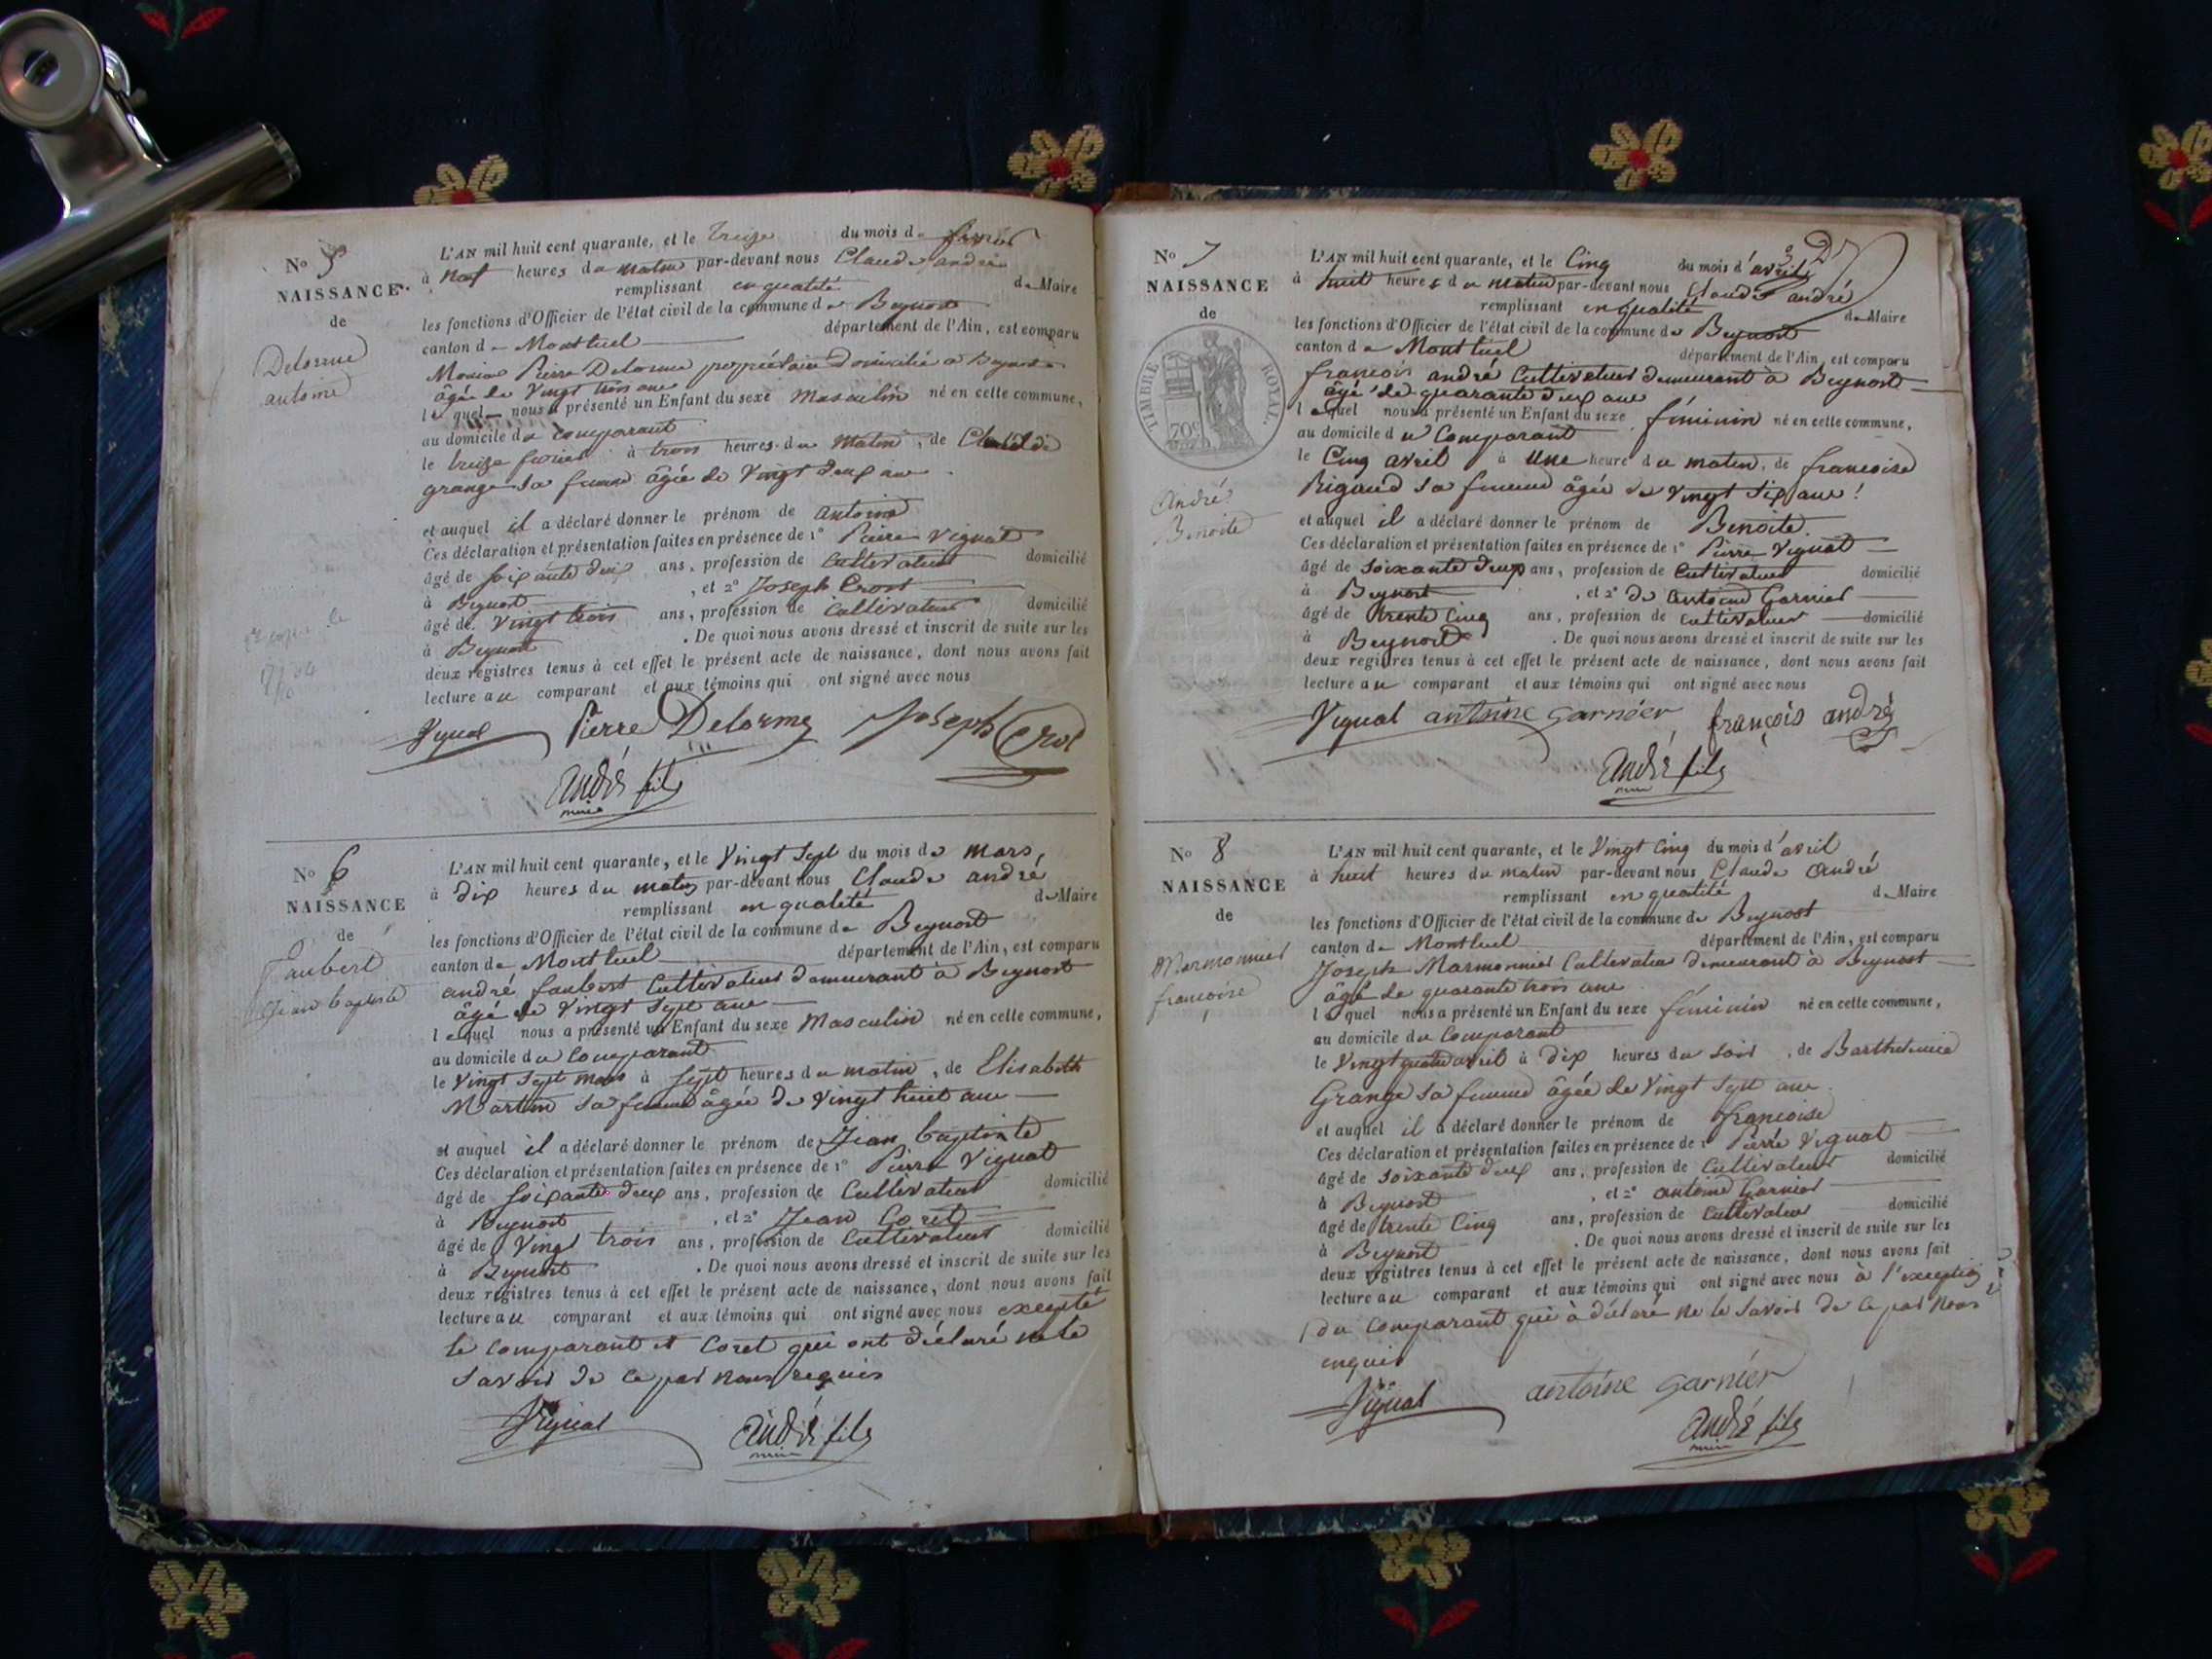 No 5
NAISSANCE
de
Delorme
antoine
L'AN mil huit cent quarante, et le treize du mois de février
à neuf heures du matin par-devant nous Claude andré
remplissant en qualité de Maire
les fonctions d'Officier de l'état civil de la commune de Beynost
canton de Montluel département de l'Ain, est comparu
Pierre Delorme propriétaire domicilié a Beynost
âgé de Vingt trois ans
lequel nous a présenté un Enfant du sexe Masculin né en cette commune,
au domicile du comparant
le treize fevrier à trois heures du matin, de
grange sa femme âgée de Vingt deux ans
et auquel il a déclaré donner le prénom de antoine
Ces déclaration et présentation faites en présence de 1° Pierre Vignat
âgé de soixante deux ans, profession de Cultivateur domicilié
à Beynost, et 2° Joseph Crost
âgé de Vingt trois ans, profession de Cultivateur domicilié
à Beynost. De quoi nous avons dressé et inscrit de suite sur les
deux registres tenus à cet effet le présent acte de naissance, dont nous avons fait
lecture au comparant et aux témoins qui ont signé avec nous
Vignat Pierre Delorme Joseph Crot
André fils
maire
No 6
NAISSANCE
de
Jaubert
Jean baptiste
L'AN mil huit cent quarante, et le Vingt Sept du mois de mars,
à dix heures du matin par-devant nous Claude andré
remplissant en qualité de Maire
les fonctions d'Officier de l'état civil de la commune de Beynost
canton de Montluel département de l'Ain, est comparu
andré Jaubert Cultivateur demeurant à Beynost
âgé de Vingt Sept ans
lequel nous a présenté un Enfant du sexe Masculin né en cette commune,
au domicile du Comparant
le Vingt Sept mars à Sept heures du matin, de Elisabeth
Martin sa femme âgée de Vingt huit ans
et auquel il a déclaré donner le prénom de Jean baptiste
Ces déclaration et présentation faites en présence de 1° Pierre Vignat
âgé de soixante deux ans, profession de Cultivateur domicilié
à Beynost, et 2° Jean Coret
âgé de Vingt trois ans, profession de Cultivateur domicilié
à Beynost. De quoi nous avons dressé et inscrit de suite sur les
deux registres tenus à cet effet le présent acte de naissance, dont nous avons fait
lecture au comparant et aux témoins qui ont signé avec nous excepté
le comparant et Coret qui ont déclaré ne le
savoir de ce par nous requis
Vignat André fils
maire
No 7
NAISSANCE
de
TIMBRE ROYAL
70c
André
Benoite
L'AN mil huit cent quarante, et le Cinq du mois d'avril
à huit heures du matin par-devant nous Claude andré
remplissant en qualité de Maire
les fonctions d'Officier de l'état civil de la commune de Beynost
canton de Montluel département de l'Ain, est comparu
françois andré Cultivateur demeurant à Beynost
âgé de quarante deux ans
lequel nous a présenté un Enfant du sexe féminin né en cette commune,
au domicile du Comparant
le Cinq avril à Une heure du matin, de francoise
Rigaud sa femme âgée de Vingt six ans
et auquel il a déclaré donner le prénom de Benoite
Ces déclaration et présentation faites en présence de 1° Pierre Vignat
âgé de soixante deux ans, profession de Cultivateur domicilié
à Beynost, et 2° de antoine Garnier
âgé de trente Cinq ans, profession de Cultivateur domicilié
à Beynost. De quoi nous avons dressé et inscrit de suite sur les
deux registres tenus à cet effet le présent acte de naissance, dont nous avons fait
lecture au comparant et aux témoins qui ont signé avec nous
Vignat antoine garnier françois andré
André fils
maire
No 8
NAISSANCE
de
Marmonnier
françoise
L'AN mil huit cent quarante, et le Vingt Cinq du mois d'avril
à huit heures du matin par-devant nous Claude André
remplissant en qualité de Maire
les fonctions d'Officier de l'état civil de la commune de Beynost
canton de Montluel département de l'Ain, est comparu
Joseph Marmonnier Cultivateur demeurant à Beynost
âgé de quarante trois ans
lequel nous a présenté un Enfant du sexe féminin né en cette commune,
au domicile du Comparant
le Vingt quatre avril à dix heures du soir, de Barthelemie
Grange sa femme âgée de Vingt Sept ans
et auquel il a déclaré donner le prénom de françoise
Ces déclaration et présentation faites en présence de 1° Pierre Vignat
âgé de soixante deux ans, profession de Cultivateur domicilié
à Beynost, et 2° antoine Garnier
âgé de trente Cinq ans, profession de Cultivateur domicilié
à Beynost. De quoi nous avons dressé et inscrit de suite sur les
deux registres tenus à cet effet le présent acte de naissance, dont nous avons fait
lecture au comparant et aux témoins qui ont signé avec nous à l'exception
du Comparant qui à déclaré ne le savoir de ce par nous
enquis
Vignat antoine garnier
André fils
maire